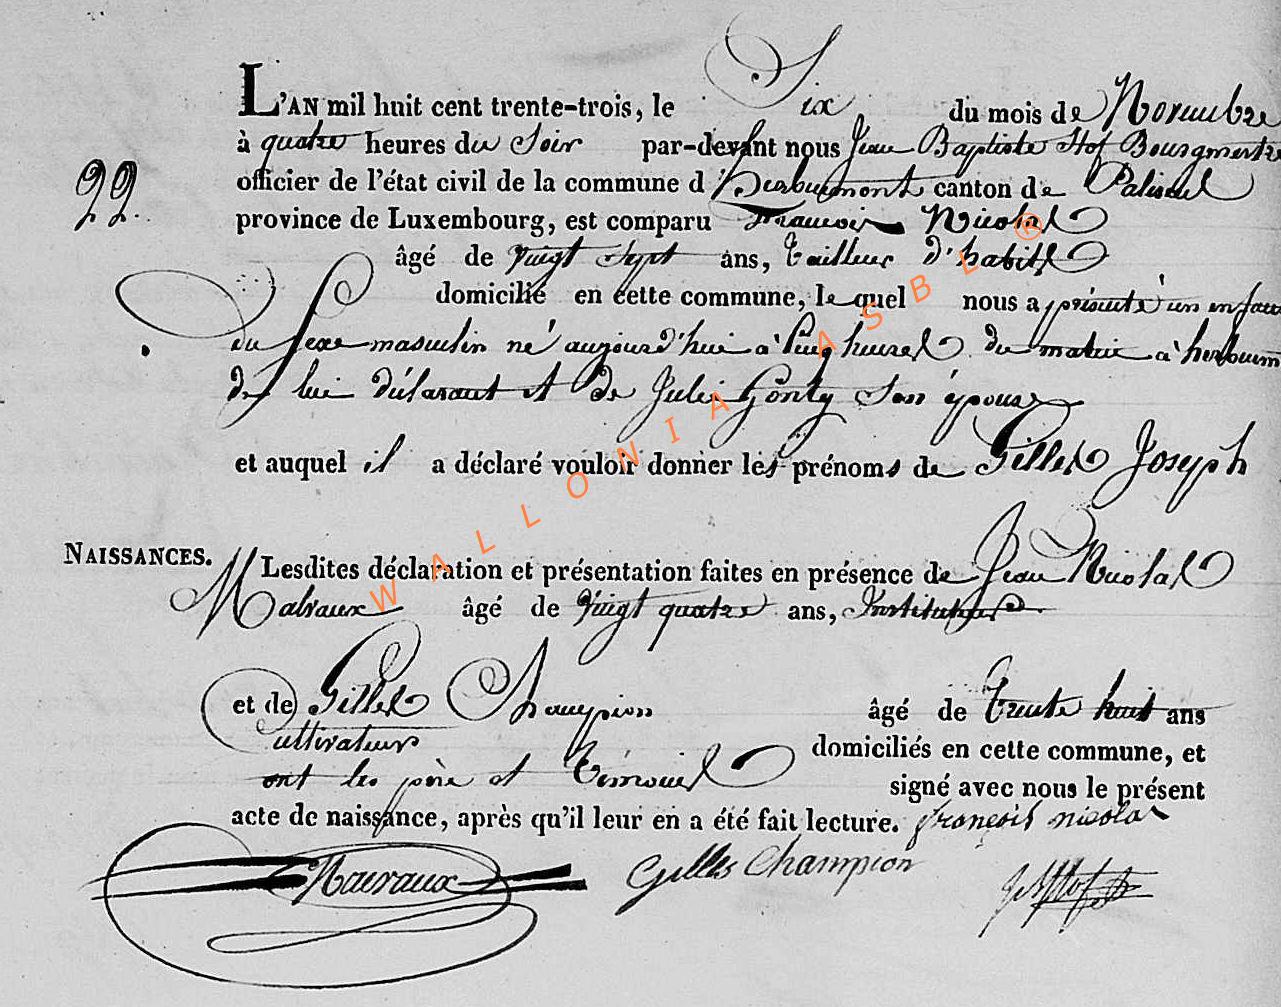 L'AN mil huit cent trente-trois, le Six du mois de Novembre
à quatre heures du Soir par-devant nous Jean Baptiste Hof Bourgmestre
officier de l'état civil de la commune d'herbeumont canton de Paliseul
22.
province de Luxembourg, est comparu François Nicolas
âgé de vingt sept ans, tailleur d'habits
domicilié en cette commune, lequel nous a présenté un enfant
du sexe masculin né aujourd'hui à cinq heures du matin à herbeum
de lui déclarant et de Julie Gonty son épouse
et auquel il a déclaré vouloir donner les prénoms de Gilles Joseph
NAISSANCES.
Lesdites déclaration et présentation faites en présence de Jean Nicolas
Malvaux âgé de vingt quatre ans, Instituteur
et de Gilles Champion âgé de trente huit ans
cultivateur domiciliés en cette commune, et
ont les père et témoins signé avec nous le présent
acte de naissance, après qu'il leur en a été fait lecture. françois nicolas
Gilles Champion
WALLONIA ASBL ®